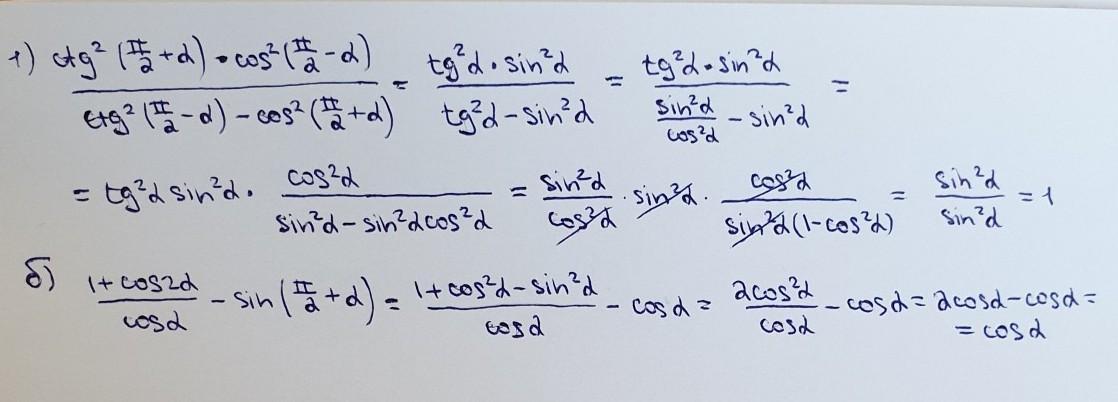 1) ctg²(π/2+α)·cos²(π/2-α) / ctg²(π/2-α)-cos²(π/2+α) = tg²α·sin²α / tg²α-sin²α = tg²α·sin²α / (sin²α/cos²α - sin²α) =
= tg²α sin²α · cos²α / sin²α-sin²αcos²α = sin²α/cos²α · sin²α · cos²α / sin²α(1-cos²α) = sin²α/sin²α = 1
б) 1+cos2α / cosα - sin(π/2+α) = 1+cos²α-sin²α / cosα - cosα = 2cos²α / cosα - cosα = 2cosα-cosα =
= cosα